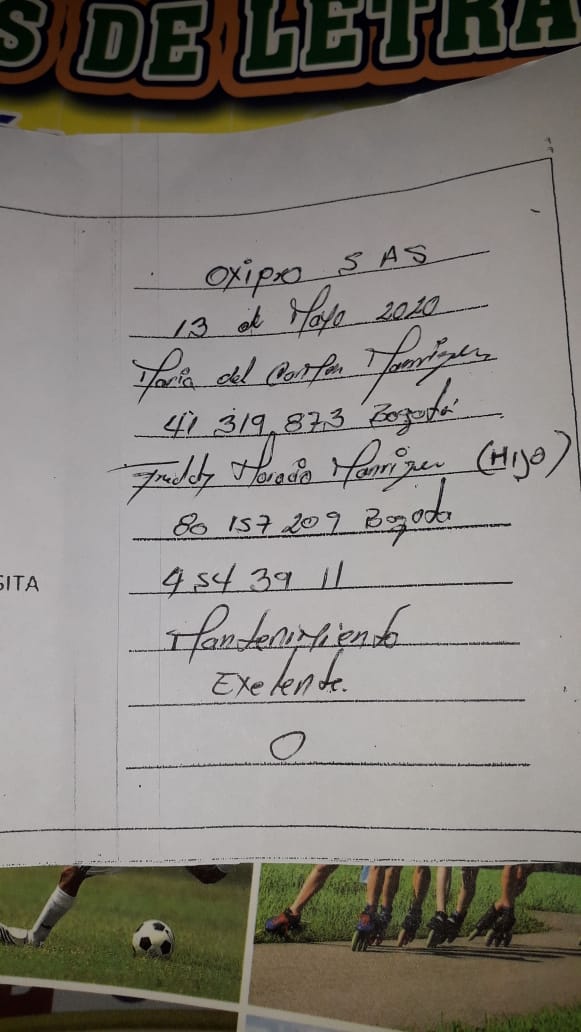 S DE LETRA
Oxipro SAS
13 de Mayo 2020
Maria del Carmen Manrique
41 319 873 Bogotá
Freddy Horacio Manrique (Hijo)
80 157 209 Bogota
SITA
454 39 11
Mantenimiento
Exelente.
O